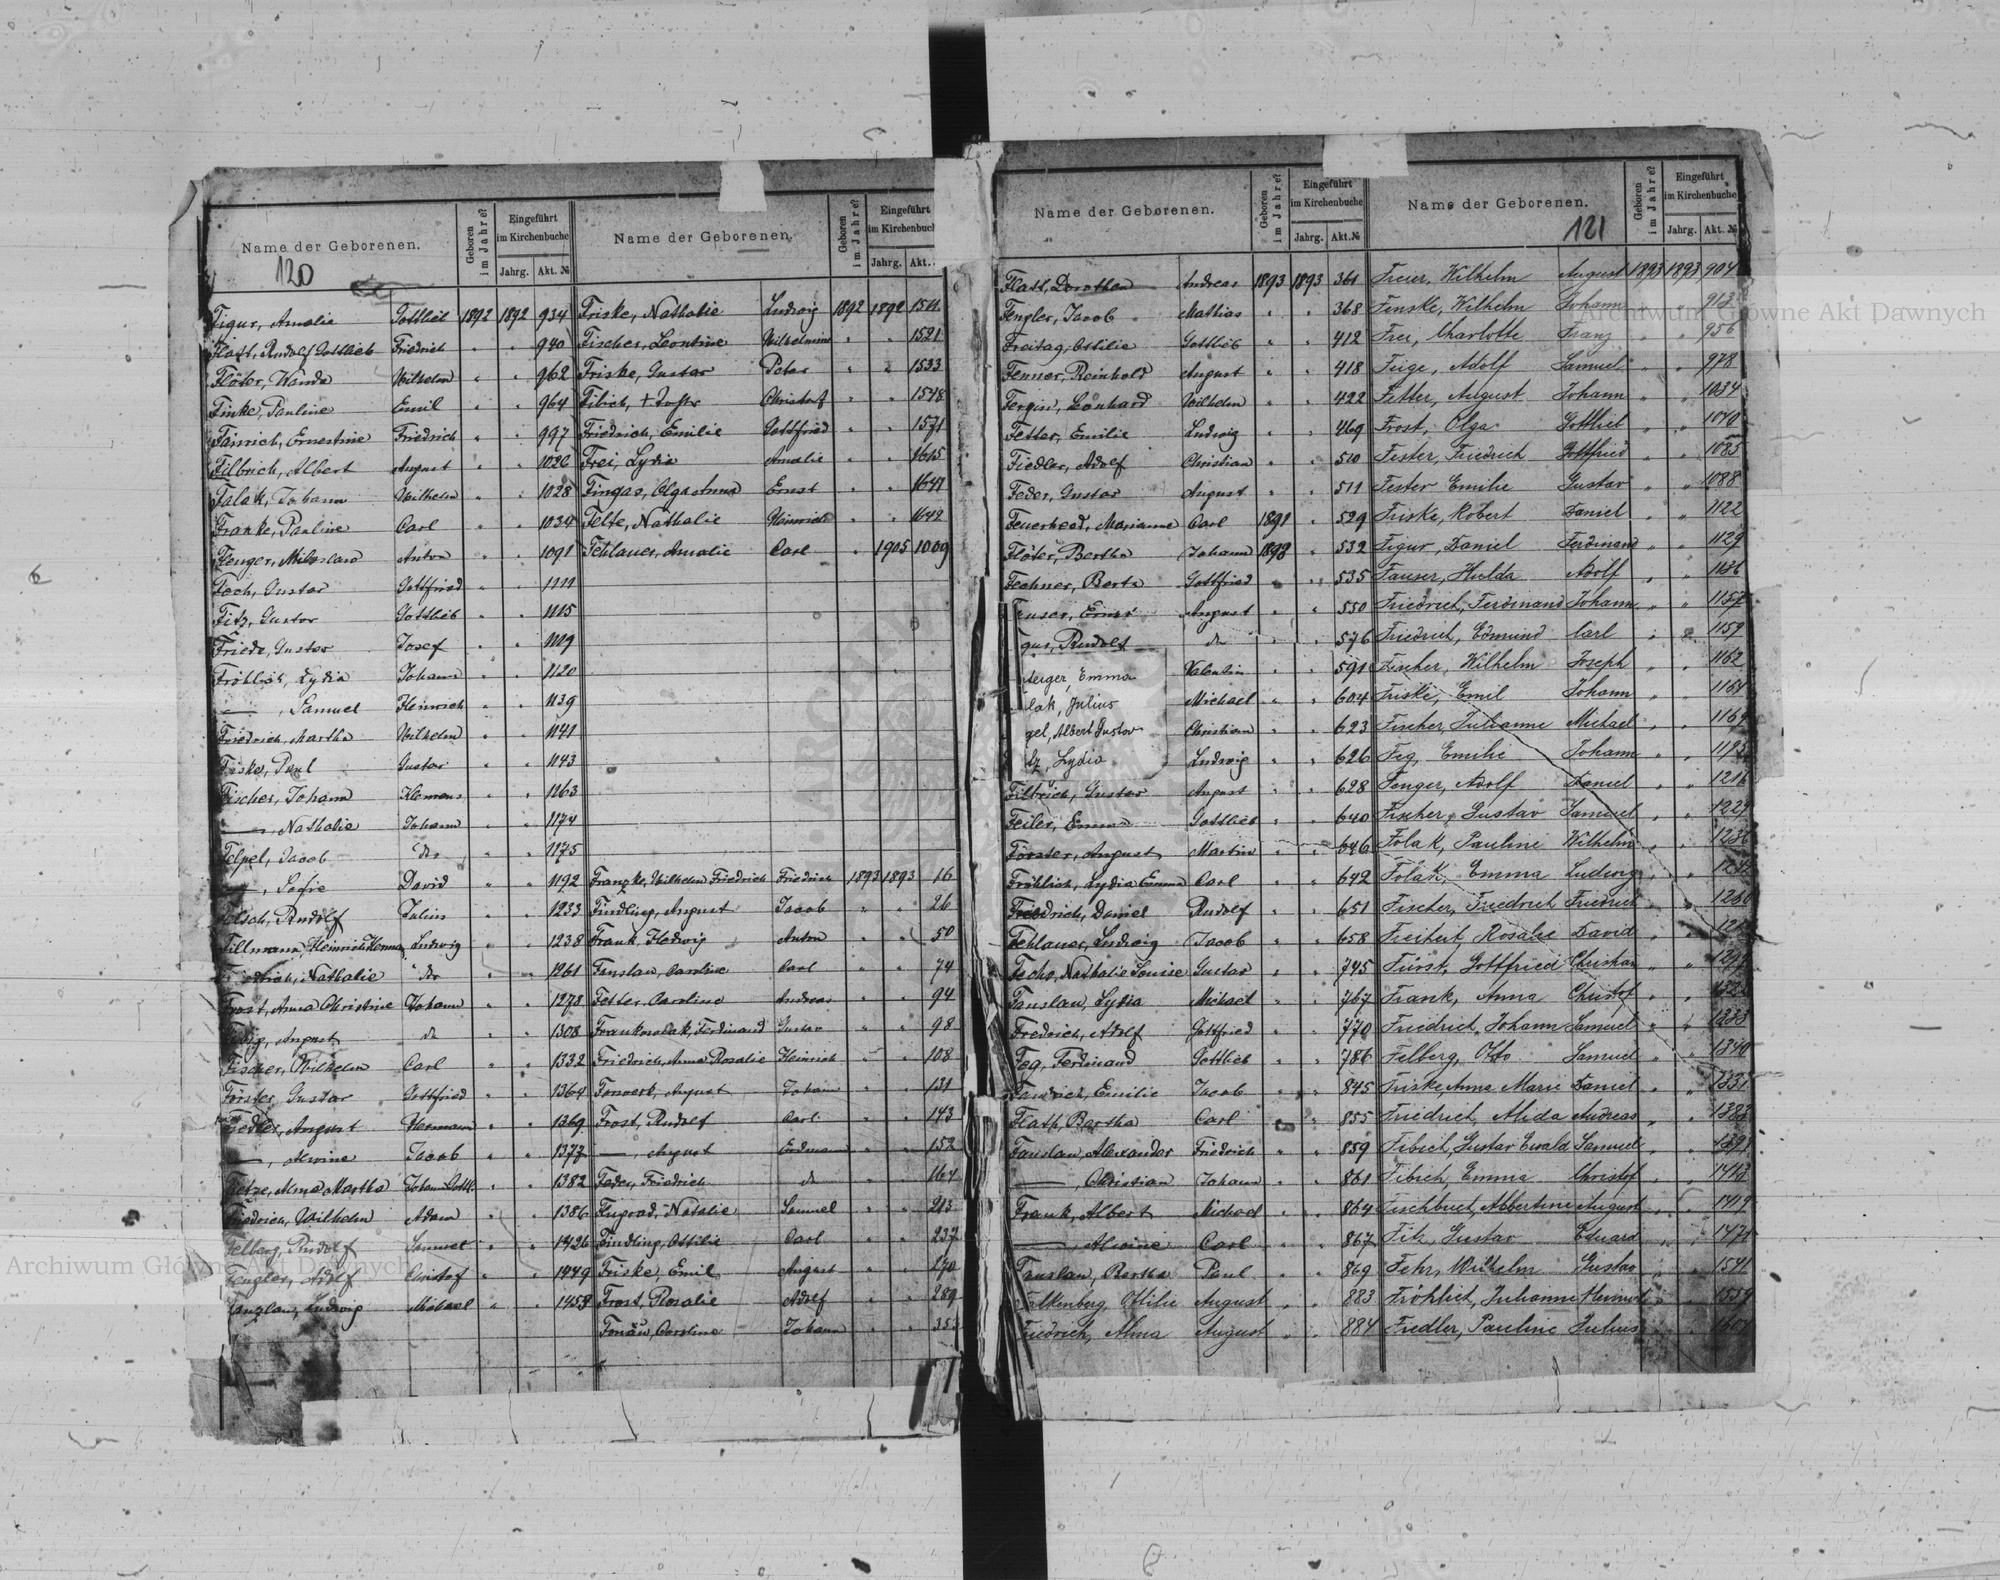 Name der Geborenen.
Geboren im Jahre?
Eingeführt im Kirchenbuche
Jahrg. Akt. №
Name der Geborenen.
Geboren im Jahre?
Eingeführt im Kirchenbuche
Jahrg. Akt.
120
Figur, Amalie Gottlieb 1892 1892 934
Flatt, Rudolf Gottlieb Friedrich " " 940
Flöter, Wanda Wilhelm " " 962
Finke, Pauline Emil " " 964
Ernestine Friedrich " " 997
Filbrich, Albert August " " 1026
Falak, Johann Wilhelm " " 1028
Franke, Pauline Carl " " 1034
Fenger, Anton " " 1091
Foch, Gustav Gottfried " " 1111
Fitz, Gustav Gottlieb " " 1115
Friede, Gustav Josef " " 1119
Fröhlich, Lydia Johann " " 1120
—, Samuel Heinrich " " 1139
Friedrich, Martha Wilhelm " " 1141
Friske, Paul Gustav " " 1143
Fischer, Johann Klemens " " 1163
—, Nathalie Johann " " 1174
Felpel, Jacob do " " 1175
—, Sofie David " " 1192
Rudolf Julius " " 1233
Fillmann, Heinrich Ludwig " " 1238
Friedrich, Nathalie do " " 1261
Frost, Anna Christine Johann " " 1278
August do " " 1308
Fischer, Wilhelm Carl " " 1332
Förster, Gustav Gottfried " " 1364
Fiedler, August Hermann " " 1369
—, Alwine Jacob " " 1377
Alma Martha Johann Gottl. " " 1382
Friedrich, Wilhelm Adam " " 1386
Felberg, Rudolf Samuel " " 1426
Fengler, Adolf Christof " " 1449
Fanzlau, Ludwig Michael " " 1453
Friske, Nathalie Ludwig 1892 1892
Fischer, Leontine Wilhelmine " " 1521
Friske, Gustav Peter " " 1533
Fibich, Christof " " 1548
Friedrich, Emilie Gottfried " " 1571
Frei, Lydia Amalie " " 1615
Fingas, Olga Anna Ernst " " 1641
Felte, Nathalie Heinrich " " 1642
Fehlauer, Amalie Carl " 1905 1009
Franzke, Wilhelm Friedrich Friedrich 1893 1893 16
Findling, August Jacob " " 26
Frank, Hedwig Anton " " 50
Fanslau, Caroline Carl " " 74
Fetter, Caroline Andreas " " 94
Ferdinand Gustav " " 98
Friedrich, Anna Rosalie Heinrich " " 108
August Johann " " 131
Frost, Rudolf Carl " " 143
—, August Erdmann " " 152
Feder, Friedrich do " 164
Natalie Samuel " " 213
Findling, Ottilie Carl " " 237
Friske, Emil August " " 270
Frost, Rosalie Adolf " " 289
Caroline Johann " "
Name der Geborenen.
Geboren im Jahre?
Eingeführt im Kirchenbuche
Jahrg. Akt. №
Name der Geborenen.
Geboren im Jahre?
Eingeführt im Kirchenbuche
Jahrg. Akt. №
121
Flatt, Dorothea Andreas 1893 1893 361
Fengler, Jacob Mathias " 368
Freitag, Ottilie Gottlieb " " 412
Fenner, Reinhold August " " 418
Leonhard Wilhelm " " 422
Fetter, Emilie Ludwig " " 469
Fiedler, Adolf Christian " " 510
Feder, Gustav August " " 511
Marianne Carl 1891 " 529
Flöter, Bertha Johann 1893 " 532
Fechner, Berta Gottfried " " 535
August " " 550
gur, Rudolf do " " 576
Emma Valentin " " 591
lak, Julius Michael " " 604
gel, Albert Gustav Christian " " 623
tz, Lydia Ludwig " " 626
Filbrich, Gustav August " " 628
Feiler, Emma Gottlieb " " 640
Förster, August Martin " " 646
Fröhlich, Lydia Emma Carl " " 642
Friedrich, Daniel Rudolf " " 651
Fehlauer, Ludwig Jacob " " 658
Nathalie Louise Gustav " " 745
Fanslau, Lydia Michael " " 767
Fredrich, Adolf Gottfried " " 770
Feg, Ferdinand Gottlieb " " 786
Emilie Jacob " " 845
Flath, Bertha Carl " " 855
Fanslau, Alexander Friedrich " " 859
—, Christian Johann " " 861
Frank, Albert Michael " " 864
—, Alwine Carl " " 867
Fanslau, Bertha Paul " " 869
Falkenberg, Ottilie August " " 883
Friedrich, Alma August " " 884
Freier, Wilhelm August 1893 1893 904
Finske, Wilhelm Johann " "
Frei, Charlotte Franz " " 956
Feige, Adolf Samuel " " 978
Fetter, August Johann " " 1034
Frost, Olga Gottlieb " " 1040
Fester, Friedrich Gottfried " " 1085
Fester Emilie Gustav " " 1088
Friske, Robert Daniel " " 1122
Figur, Daniel Ferdinand " " 1129
Fauser, Hulda Adolf " " 1136
Friedrich, Ferdinand Johann " " 1157
Friedrich, Edmund Carl " " 1159
Fischer, Wilhelm Joseph " " 1162
Friske, Emil Johann " " 1164
Fischer, Julianne Michael " " 1169
Feg, Emilie Johann " "
Fenger, Adolf Daniel " " 1216
Fischer, Gustav Samuel " " 1229
Folak, Pauline Wilhelm " " 1236
Folak, Emma Ludwig " "
Fischer, Friedrich Friedrich " "
Freiheit, Rosalie David " "
Fürst, Gottfried Christian " "
Frank, Anna Christof " "
Friedrich, Johann Samuel " " 1333
Felberg, Otto Samuel " " 1340
Friske, Anna Marie Daniel " " 1351
Friedrich, Alida Andreas " " 1383
Fibich, Gustav Ewald Samuel " " 1391
Fibich, Emma Christof " " 1413
Fischbuch, Albertine August " " 1419
Fitz, Gustav Eduard " " 1471
Fehr, Wilhelm Gustav " " 1541
Fröhlich, Julianne Heinrich " " 1559
Fiedler, Pauline Julius " "
Archiwum Główne Akt Dawnych
Archiwum Główne Akt Dawnych